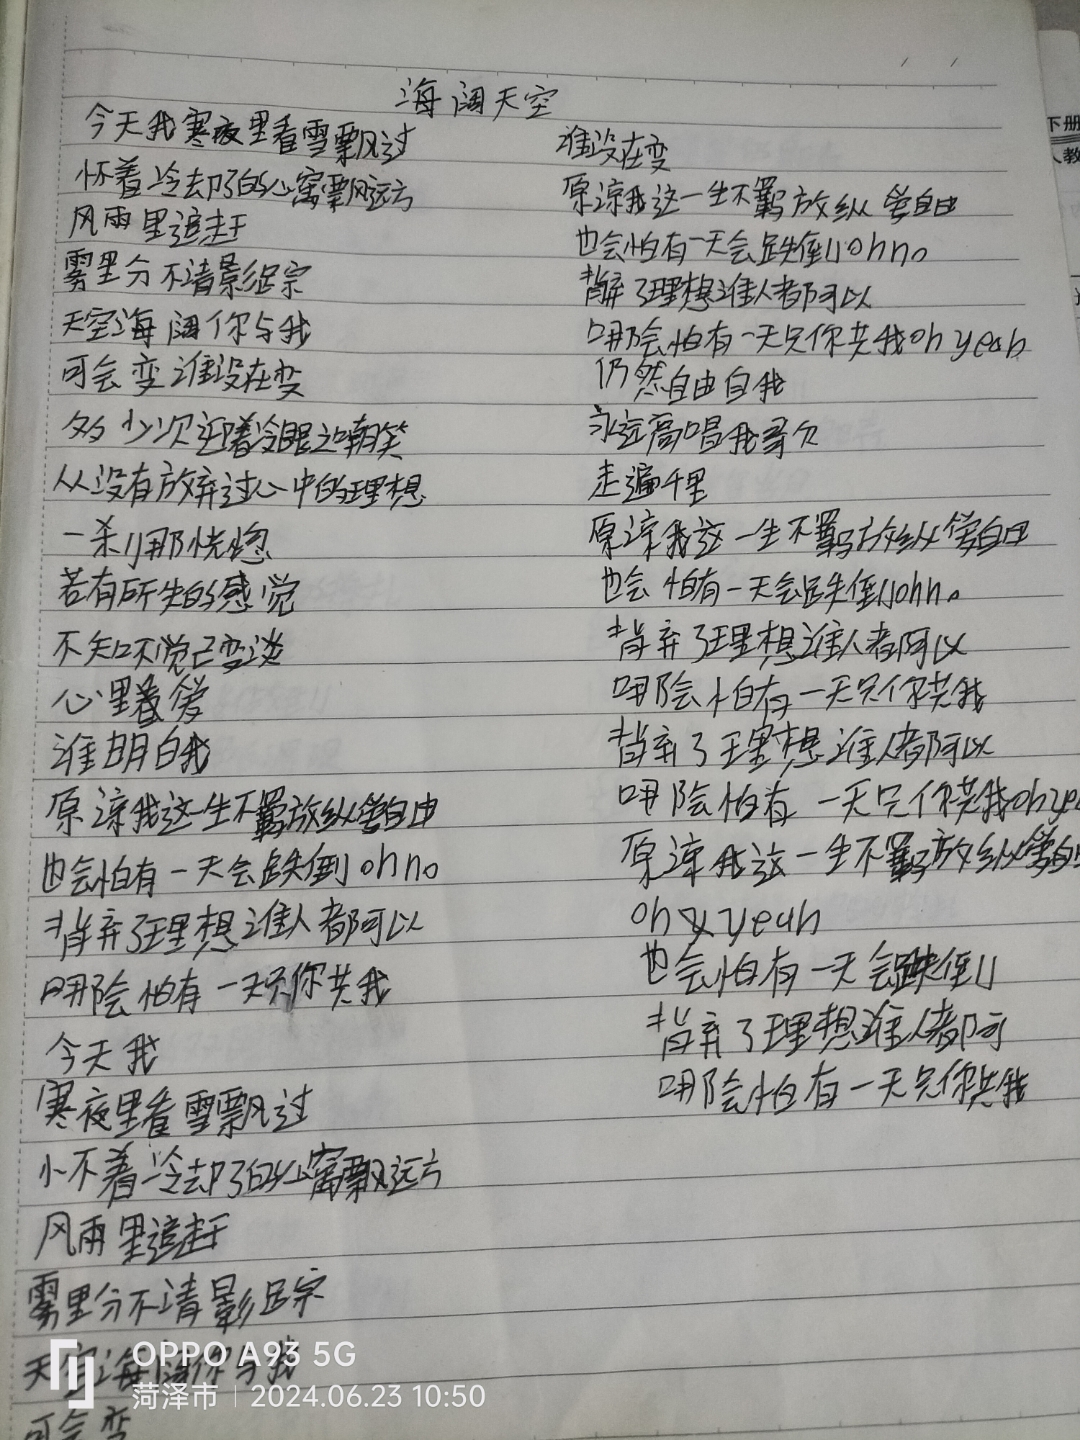 海阔天空
今天我寒夜里看雪飘过
怀着冷去却了的心窝飘远方
风雨里追赶
雾里分不清影踪
天空海阔你与我
可会变谁没在变
多少次迎着冷眼与嘲笑
从没有放弃过心中的理想
一刹那恍惚
若有所失的感觉
不知不觉已变淡
心里着爱
谁明白我
原谅我这一生不羁放纵爱自由
也会怕有一天会跌倒 oh no
背弃了理想谁人都可以
哪会怕有一天只你共我
今天我
寒夜里看雪飘过
怀着冷去却了的心窝飘远方
风雨里追赶
雾里分不清影踪
天空海阔你与我
可会变
谁没在变
原谅我这一生不羁放纵爱自由
也会怕有一天会跌倒 oh no
背弃了理想谁人都可以
哪会怕有一天只你共我 oh yeah
仍然自由自我
永远高唱我哥欠
走遍千里
原谅我这一生不羁放纵爱自由
也会怕有一天会跌倒 oh no
背弃了理想谁人都可以
哪会怕有一天只你共我
背弃了理想谁人都可以
哪会怕有一天只你共我 oh ye
原谅我这一生不羁放纵爱自由
oh yeah
也会怕有一天会跌倒
背弃了理想谁人都可
哪会怕有一天只你共我
下册
人教
OPPO A93 5G
菏泽市 2024.06.23 10:50